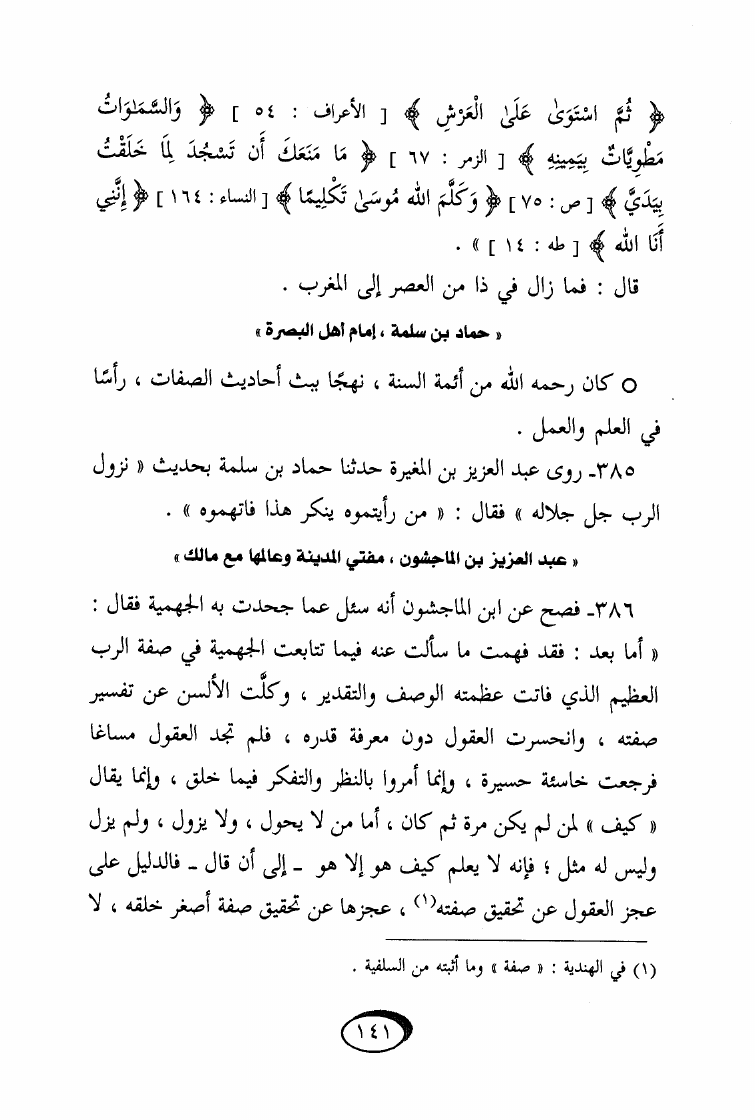 ﴿ ثُمَّ اسْتَوَىٰ عَلَىٰ الْعَرْشِ ﴾ [ الأعراف : ٥٤ ] ﴿ وَالسَّمٰوَاتُ
مَطْوِيَّاتٌ بِيَمِينِهِ ﴾ [ الزمر : ٦٧ ] ﴿ مَا مَنَعَكَ أَن تَسْجُدَ لِمَا خَلَقْتُ
بِيَدَيَّ ﴾ [ ص : ٧٥ ] ﴿ وَكَلَّمَ الله مُوسَىٰ تَكْلِيمًا ﴾ [ النساء : ١٦٤ ] ﴿ إِنَّنِي
أَنَا الله ﴾ [ طه : ١٤ ] » .
قال : فما زال في ذا من العصر إلى المغرب .
« حماد بن سلمة ، إمام أهل البصرة »
○ كان رحمه الله من أئمة السنة ، نهجًا ببث أحاديث الصفات ، رأسًا
في العلم والعمل .
٣٨٥ـ روى عبد العزيز بن المغيرة حدثنا حماد بن سلمة بحديث « نزول
الرب جل جلاله » فقال : « من رأيتموه ينكر هذا فاتهموه » .
« عبد العزيز بن الماجشون ، مفتي المدينة وعالمها مع مالك »
٣٨٦ـ فصح عن ابن الماجشون أنه سئل عما جحدت به الجهمية فقال :
« أما بعد : فقد فهمت ما سألت عنه فيما تتابعت الجهمية في صفة الرب
العظيم الذي فاتت عظمته الوصف والتقدير ، وكلَّت الألسن عن تفسير
صفته ، وانحسرت العقول دون معرفة قدره ، فلم تجد العقول مساغا
فرجعت خاسئة حسيرة ، وإنما أمروا بالنظر والتفكر فيما خلق ، وإنما يقال
« كيف » لمن لم يكن مرة ثم كان ، أما من لا يحول ، ولا يزول ، ولم يزل
وليس له مثل ؛ فإنه لا يعلم كيف هو إلا هو ـ إلى أن قال ـ فالدليل على
عجز العقول عن تحقيق صفته(١) ، عجزها عن تحقيق صفة أصغر خلقه ، لا
(١) في الهندية : « صفة » وما أثبته من السلفية .
١٤١